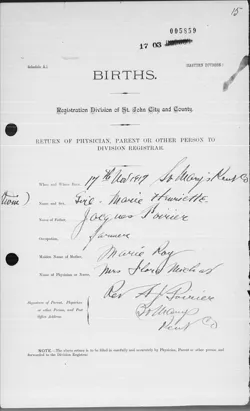 15
005859
17 03
Schedule A.]
[EASTERN DIVISION]
BIRTHS.
Registration Division of St. John City and County.
RETURN OF PHYSICIAN, PARENT OR OTHER PERSON TO
DIVISION REGISTRAR.
When and Where Born, 17th Nov 1919 St Mary's Kent Co
Name and Sex, Girl Marie Henriette
(Twins)
Name of Father, Jacques Poirier
Occupation, Farmer
Maiden Name of Mother, Marie Roy
Name of Physician or Nurse, Mrs Flora
Signature of Parent, Physician
or other Person, and Post
Office Address.
Rev A J Poirier
St Marys
Kent Co
NOTE.—The above return is to be filled in carefully and accurately by Physician, Parent or other person, and
forwarded to the Division Registrar.